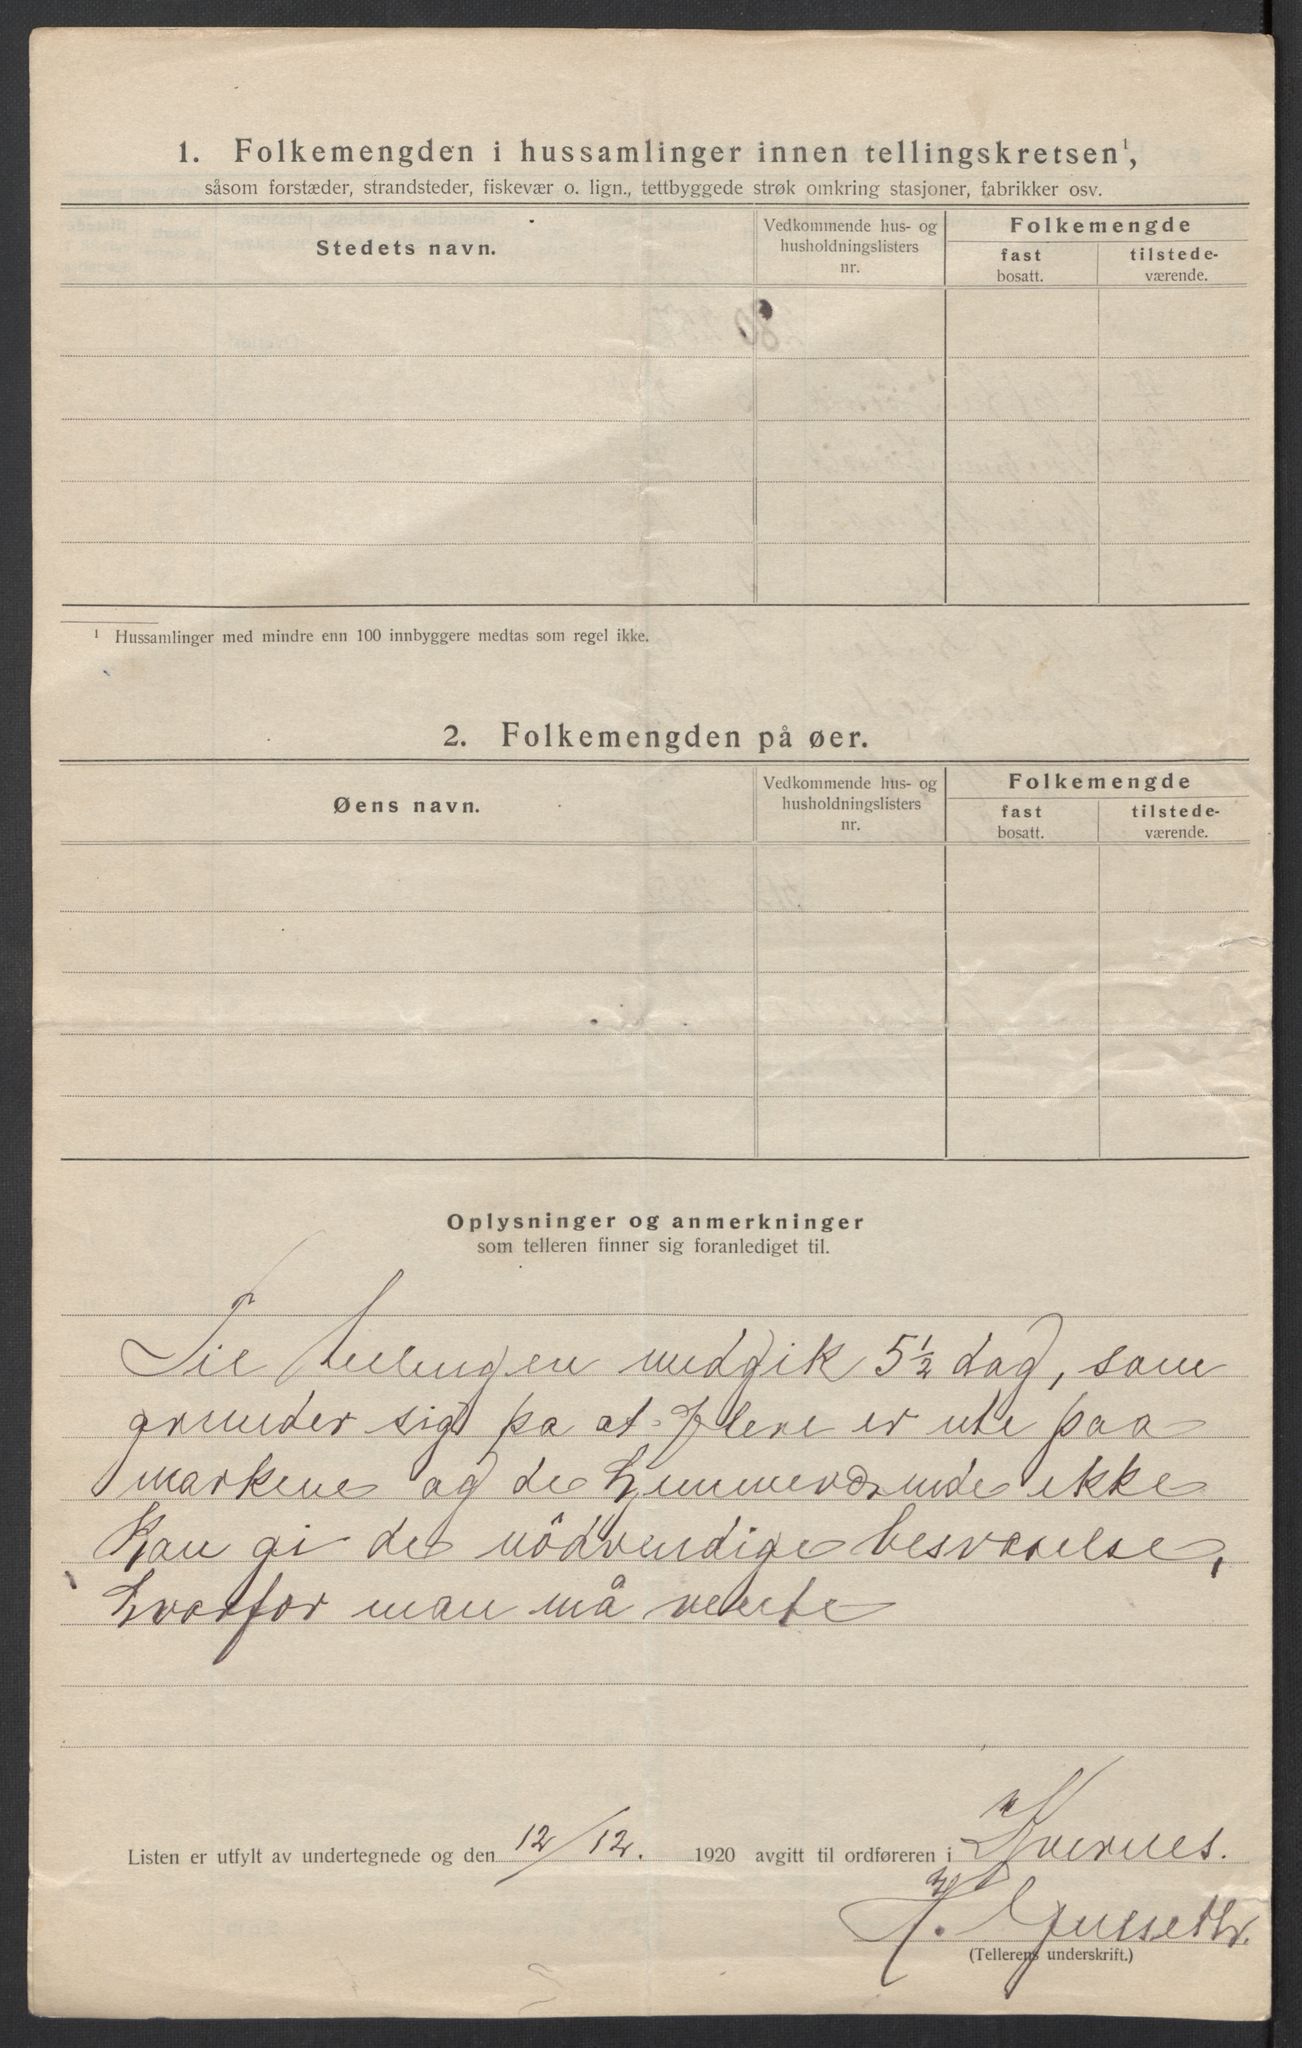 1. Folkemengden i hussamlinger innen tellingskretsen¹,
såsom forstæder, strandsteder, fiskevær o. lign., tettbyggede strøk omkring stasjoner, fabrikker osv.
Stedets navn.
Vedkommende hus- og
husholdningslisters
nr.
Folkemengde
fast
bosatt.
tilstede-
værende.
¹ Hussamlinger med mindre enn 100 innbyggere medtas som regel ikke.
2. Folkemengden på øer.
Øens navn.
Vedkommende hus- og
husholdningslisters
nr.
Folkemengde
fast
bosatt.
tilstede-
værende.
Oplysninger og anmerkninger
som telleren finner sig foranlediget til.
Til tellingen medgik 5½ dag, som
grunder sig pa at flere er ute paa
markene og de hjemmeværende ikke
kan gi de nödvendige besvarelse,
hvorfor man må vente
Listen er utfylt av undertegnede og den 12/12. 1920 avgitt til ordføreren i Kvernes.
(Tellerens underskrift.)